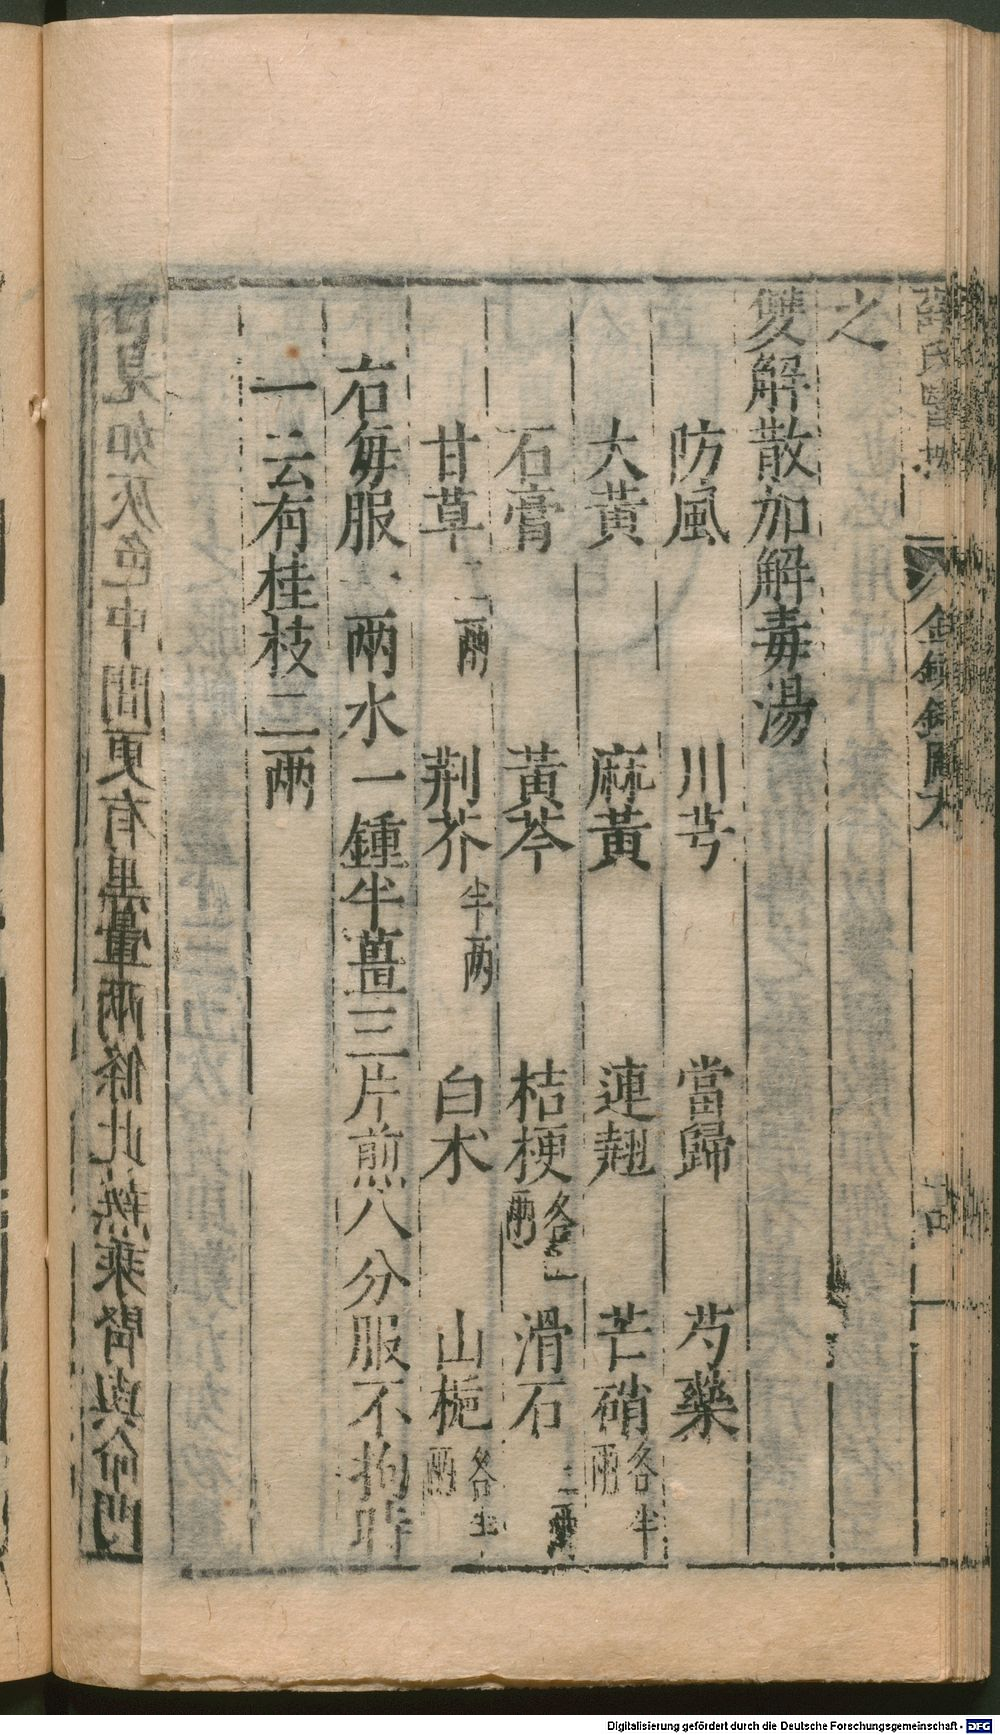 之
雙解散加解毒湯
防風 川芎 當歸 芍藥
大黃 麻黃 連翹 芒硝各半兩
石膏 黃芩 桔梗各一兩 滑石三兩
甘草二兩 荆芥半兩 白朮 山梔各半兩
右每服一兩水一鍾半薑三片煎八分服不拘時
一云有桂枝二兩
薛氏醫按
金鏡錄
Digitalisierung gefördert durch die Deutsche Forschungsgemeinschaft - DFG